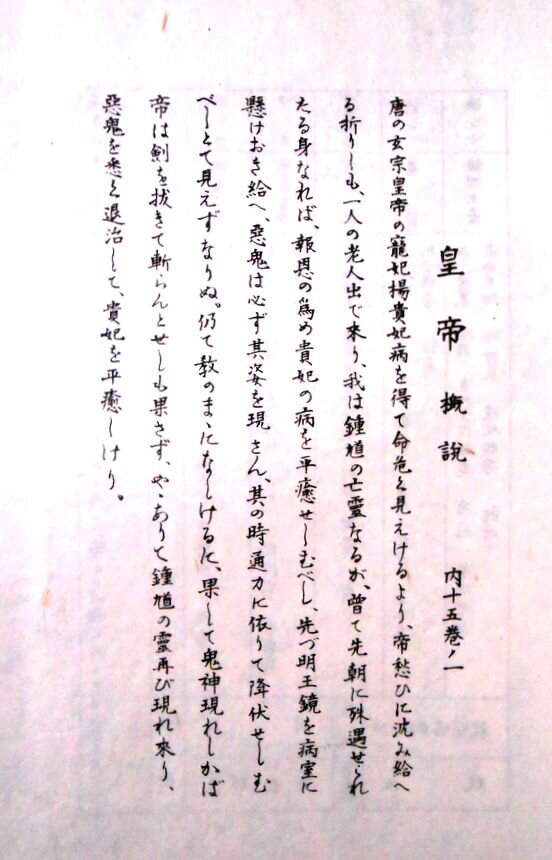 皇帝 概説　内十五巻ノ一
唐の玄宗皇帝の寵妃揚貴妃病を得て命危く見えけるより、帝愁ひに沈み給へ
る折りしも、一人の老人出で來り、我は鍾馗の亡靈なるが、曾て先朝に殊遇せられ
たる身なれば、報恩の爲め貴妃の病を平癒せしむべし、先づ明王鏡を病室に
懸けおき給へ、惡鬼は必ず其姿を現さん、其の時通力に依りて降伏せしむ
べしとて見えずなりぬ。仍て教のまゝになしけるに、果して鬼神現れしかば
帝は劍を抜きて斬らんとせしも果さず、やゝありて鍾馗の靈再び現れ來り、
惡鬼を悉く退治して、貴妃を平癒しけり。